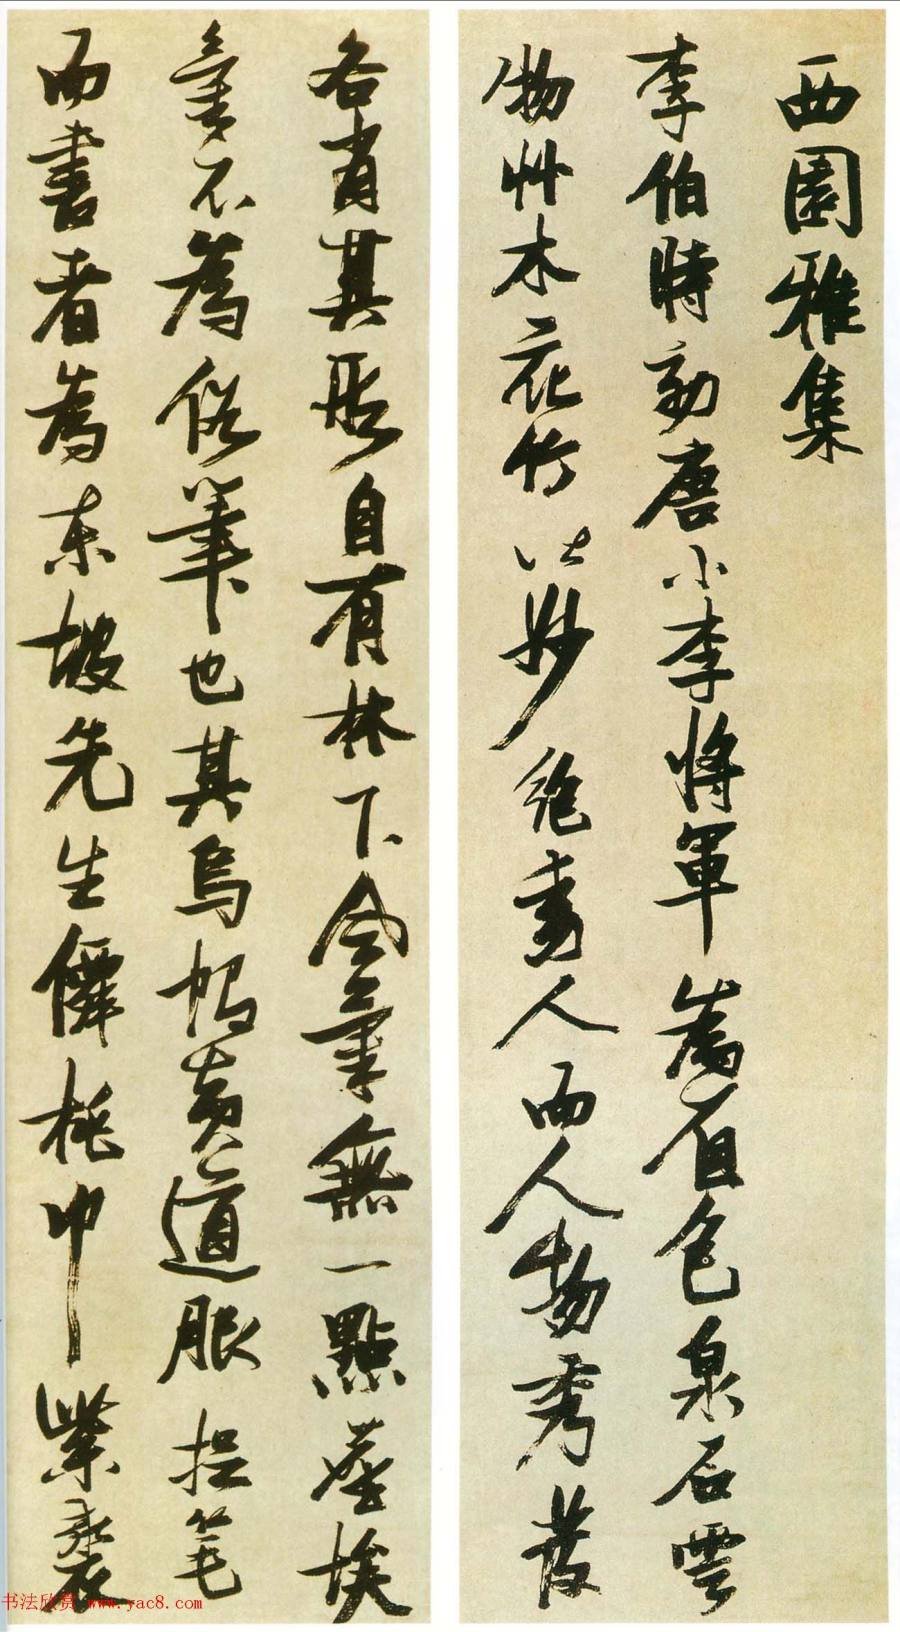 西園雅集
李伯時効唐小李將軍為着色泉石雲
物艸木花竹皆妙絶動人而人物秀發
各肖其形自有林下風氣無一點塵埃
氣不為俗筆也其烏帽黃道服捉笔
而書者為東坡先生僊桃巾紫裘
书法欣赏 www.yac8.com